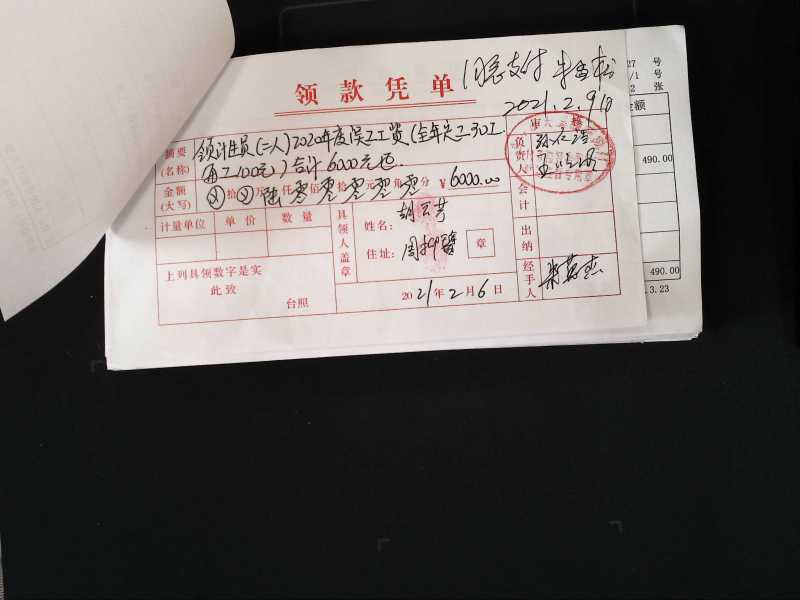 领款凭单
同意支付
2021.2.9日
27 号
/1 号
2 张
金额
摘要
(名称)
领计生员(二人)2020年度误工工资(全年误工30工
每工100元)合计6000元也
金额
(大写)
拾 万 陆仟零佰零拾零元零角零分 ¥6000.00
计量单位 单价 数量
具领人盖章
姓名:
住址:
章
负责人
会计
出纳
经手人
490.00
上列具领数字是实
此致
台照
2021年2月6日
490.00
.3.23